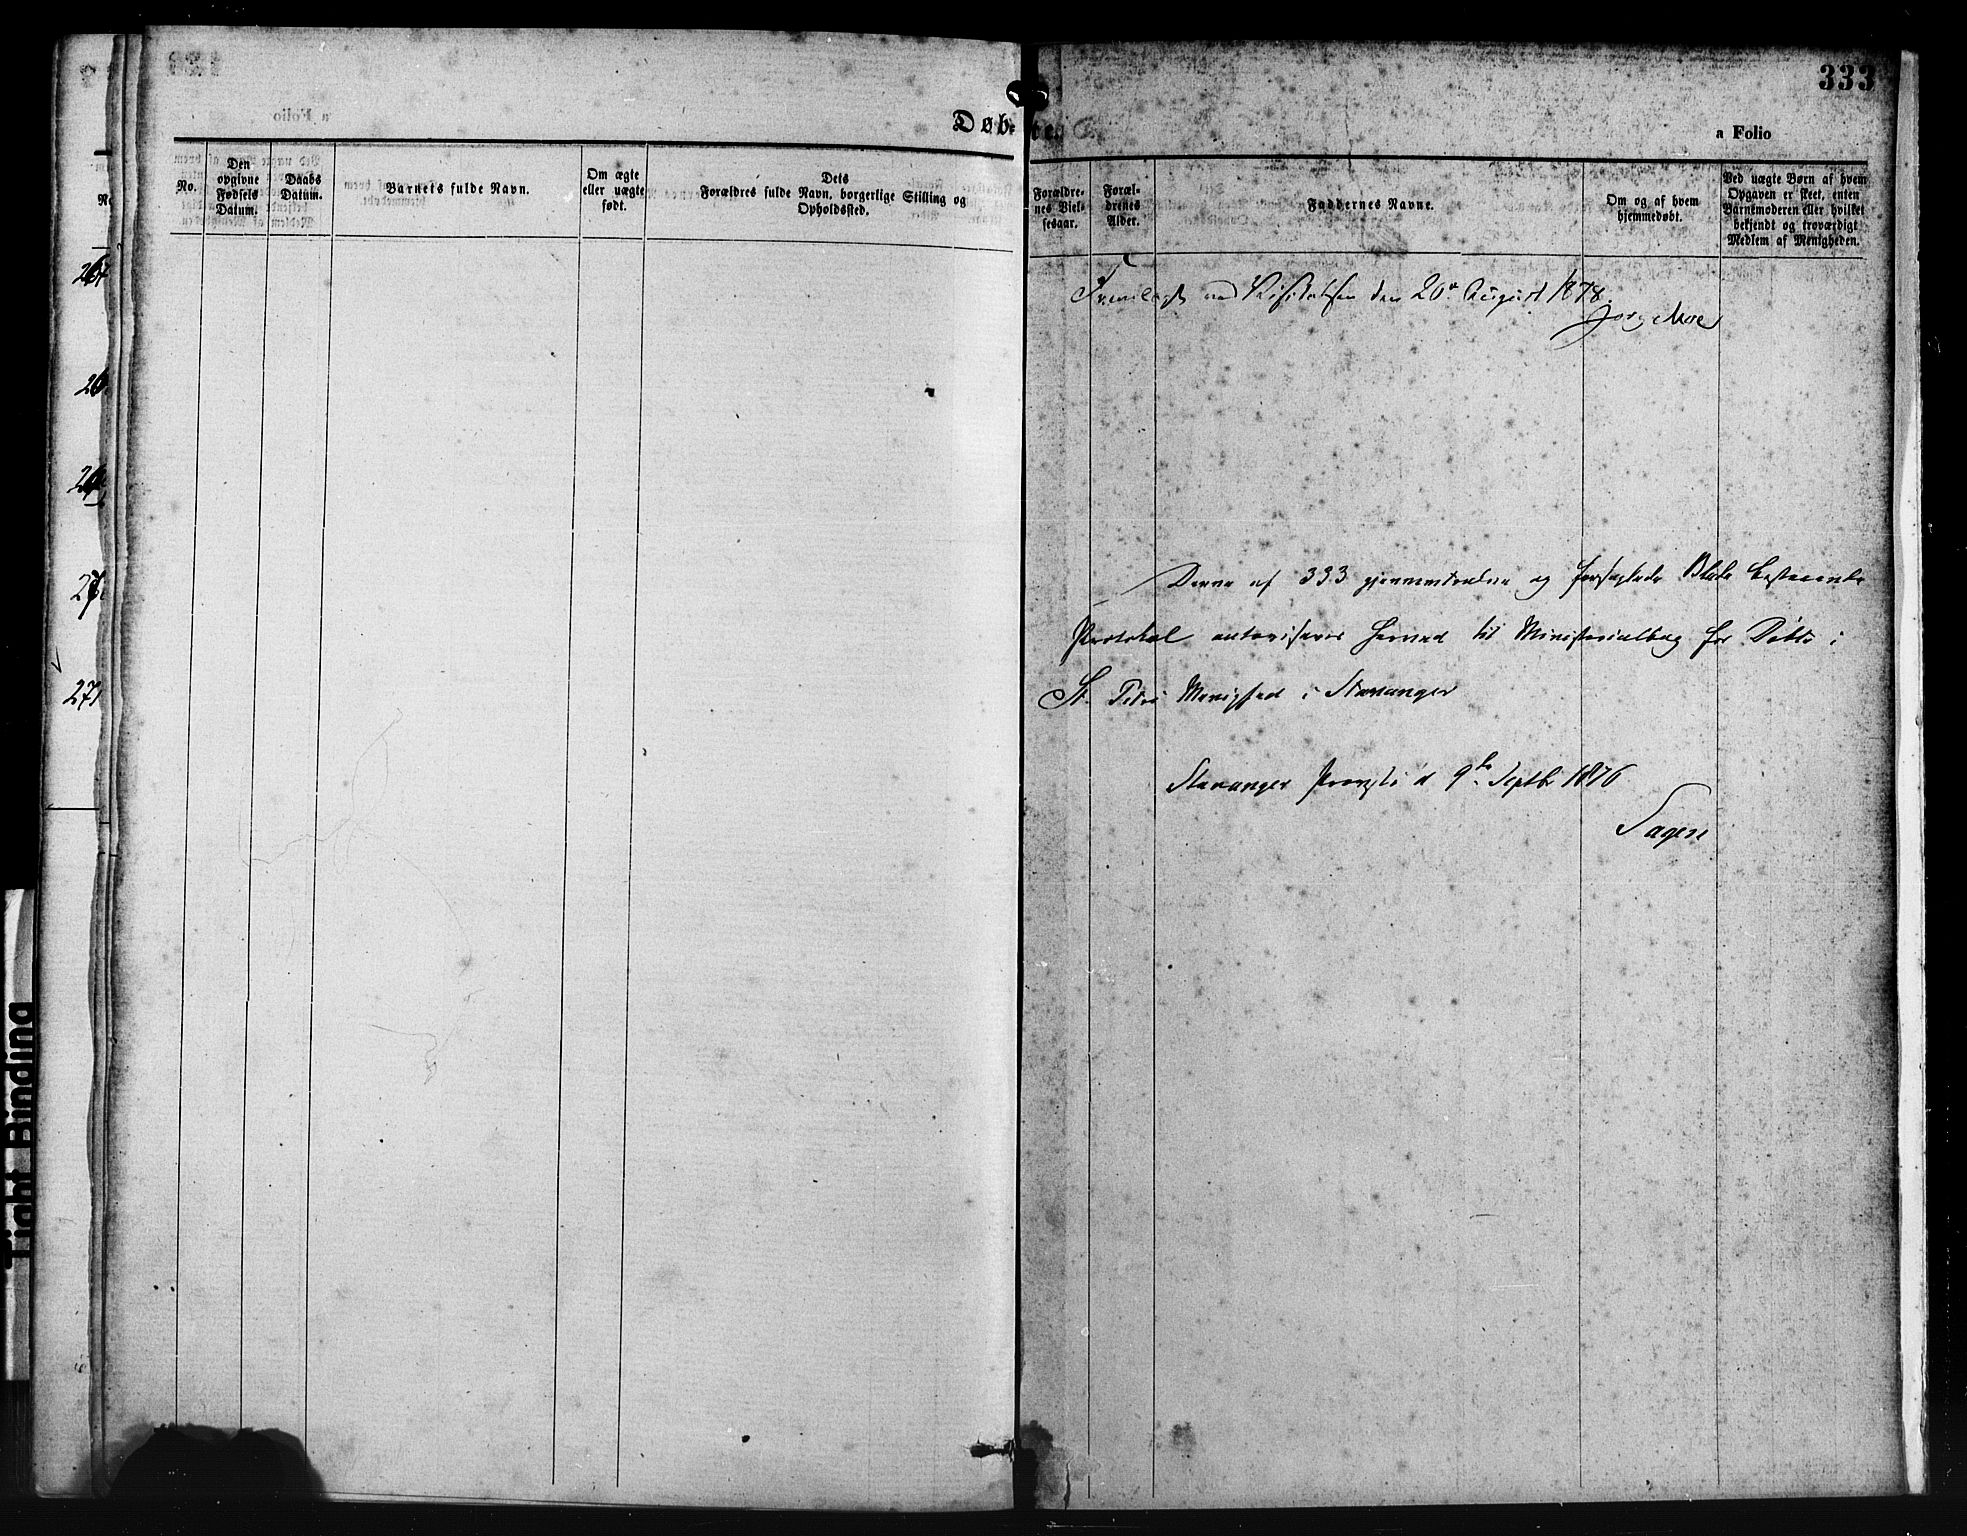 333
Døbte.
a Folio
No.
Den opgivne Fødsels Datum.
Daabs Datum.
Barnets fulde Navn.
Om ægte eller uægte født.
Dets Forældres fulde Navn, borgerlige Stilling og Opholdssted.
Forældrenes Vielsesaar.
Forældrenes Alder.
Faddernes Navne.
Om og af hvem hjemmedøbt.
Ved uægte Børn af hvem Opgaven er skeet, enten Barnemoderen eller hvilket bekjendt og troværdigt Medlem af Menigheden.
267
271
Fremlagt ved Visitatsen den 20de August 1878.
Jørg. Moe
Denne af 333 gjennemdragne og forseglede Blade bestaaende
Protokol autoriseres herved til Ministerialbog for Døbte i
St. Petri Menighed i Stavanger
Stavanger Provsti d 9de Septbr 1876
Sagen
Tight Binding